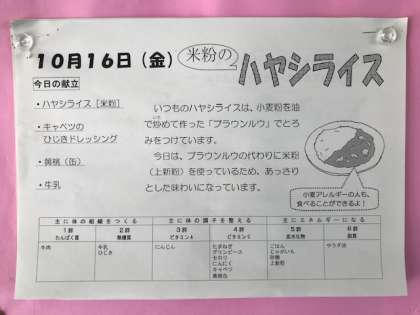 10月16日（金） 米粉の ハヤシライス
今日の献立
・ハヤシライス［米粉］
・キャベツの
ひじきドレッシング
・黄桃（缶）
・牛乳
いつものハヤシライスは、小麦粉を油
で炒めて作った「ブラウンルウ」でとろ
みをつけています。
今日は、ブラウンルウの代わりに米粉
（上新粉）を使っているため、あっさり
とした味わいになっています。
小麦アレルギーの人も、
食べることができるよ！
主に体の組織をつくる 主に体の調子を整える 主にエネルギーになる
1群 2群 3群 4群 5群 6群
たんぱく質 無機質 ビタミンA ビタミンC 炭水化物 脂質
牛肉 牛乳 にんじん たまねぎ ごはん サラダ油
ひじき グリンピース じゃがいも
セロリ 砂糖
にんにく 上新粉
キャベツ
黄桃缶